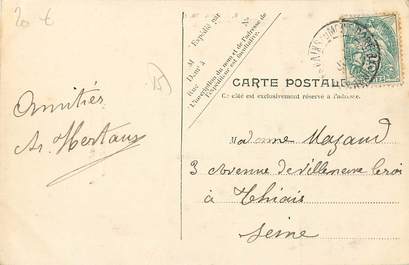 20 €
Expédié par
M
Dom à
Rue
N°
L'inscription du nom et de l'adresse de
l'expéditeur est facultative.
CARTE POSTALE
Ce côté est exclusivement réservé à l'adresse.
Amitiés
Madame Mazaud
3 avenue de Villeneuve le roi
à Thiais
Seine